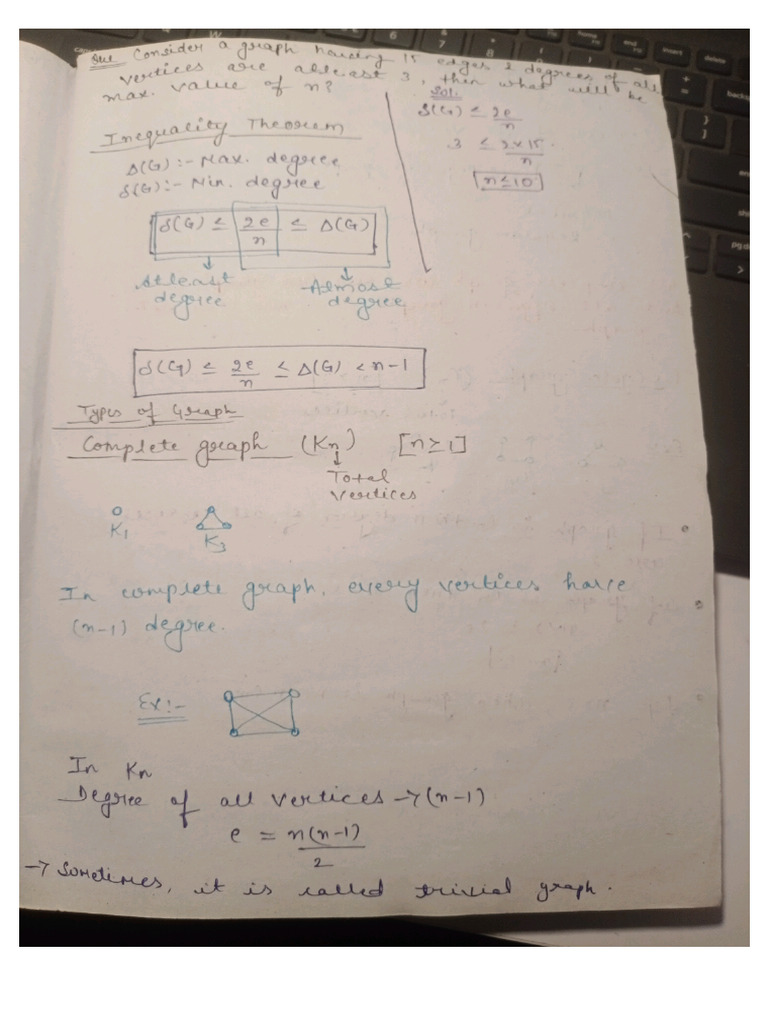 Que Consider a graph having 15 edges & degrees of all
vertices are atleast 3, then what will be
max. value of n?
Sol.
δ(G) ≤ 2e/n
3 ≤ 2×15/n
n≤10
Inequality Theorem
Δ(G) :- Max. degree
δ(G) :- Min. degree
δ(G) ≤ 2e/n ≤ Δ(G)
Atleast degree
Atmost degree
δ(G) ≤ 2e/n ≤ Δ(G) < n-1
Types of Graph
Complete graph (Kn) [n≥1]
Total
vertices
K1
K3
In complete graph, every vertices have
(n-1) degree.
Ex:-
In Kn
Degree of all vertices → (n-1)
e = n(n-1)/2
→ Sometimes, it is called trivial graph.